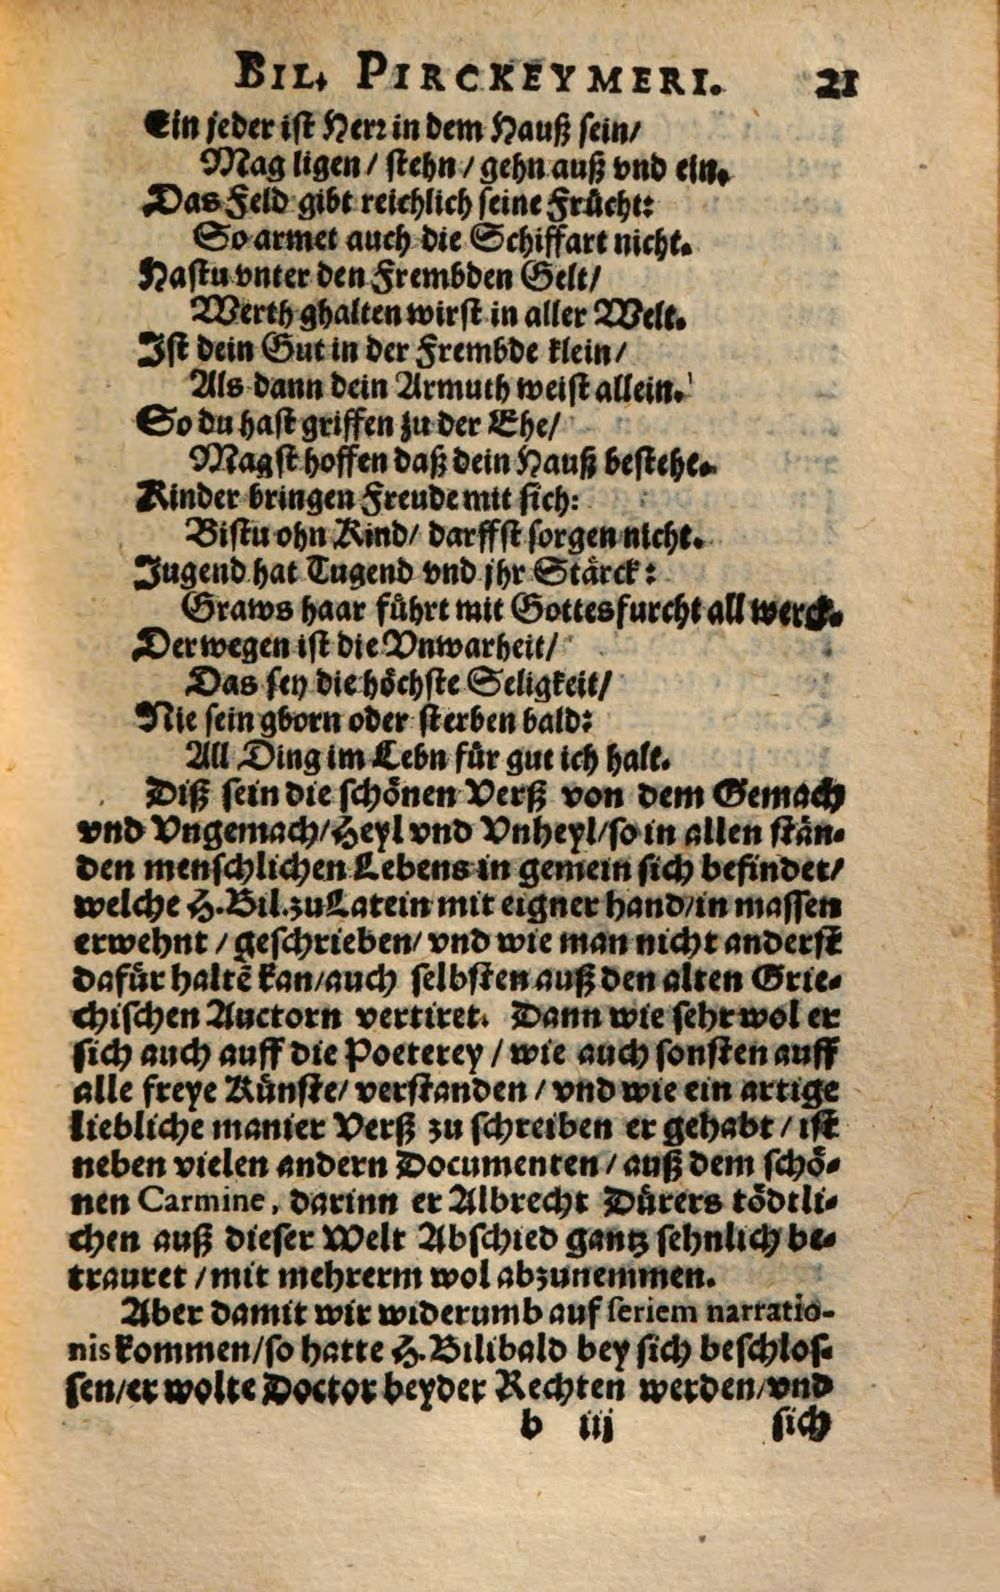 BIL. PIRCKEYMERI. 21
Ein jeder ist Herr in dem Hauß sein/
Mag ligen / stehn / gehn auß vnd ein.
Das Feld gibt reichlich seine Frücht:
So armet auch die Schiffart nicht.
Hastu vnter den Frembden Gelt/
Werth ghalten wirst in aller Welt.
Ist dein Gut in der Frembde klein/
Als dann dein Armuth weist allein.
So du hast griffen zu der Ehe/
Magst hoffen daß dein Hauß bestehe.
Kinder bringen Freude mit sich:
Bistu ohn Kind/ darffst sorgen nicht.
Jugend hat Tugend vnd jhr Stärck:
Graws haar führt mit Gottesfurcht all werck.
Derwegen ist die Vnwarheit/
Das sey die höchste Seligkeit/
Nie sein gborn oder sterben bald:
All Ding im Lebn für gut ich halt.
Diß sein die schönen Verß von dem Gemach
vnd Vngemach/Heyl vnd Vnheyl/so in allen stän-
den menschlichen Lebens in gemein sich befindet/
welche H.Bil.zu Latein mit eigner hand/in massen
erwehnt / geschrieben/ vnd wie man nicht anderst
dafür haltē kan/auch selbsten auß den alten Grie-
chischen Auctorn vertiret. Dann wie sehr wol er
sich auch auff die Poeterey / wie auch sonsten auff
alle freye Künste/ verstanden / vnd wie ein artige
liebliche manier Verß zu schreiben er gehabt / ist
neben vielen andern Documenten / auß dem schö-
nen Carmine, darinn er Albrecht Dürers tödtli-
chen auß dieser Welt Abschied gantz sehnlich be-
trauret / mit mehrerm wol abzunemmen.
Aber damit wir widerumb auf seriem narratio-
nis kommen/so hatte H.Bilibald bey sich beschlos-
sen/er wolte Doctor beyder Rechten werden/vnd
b iij sich